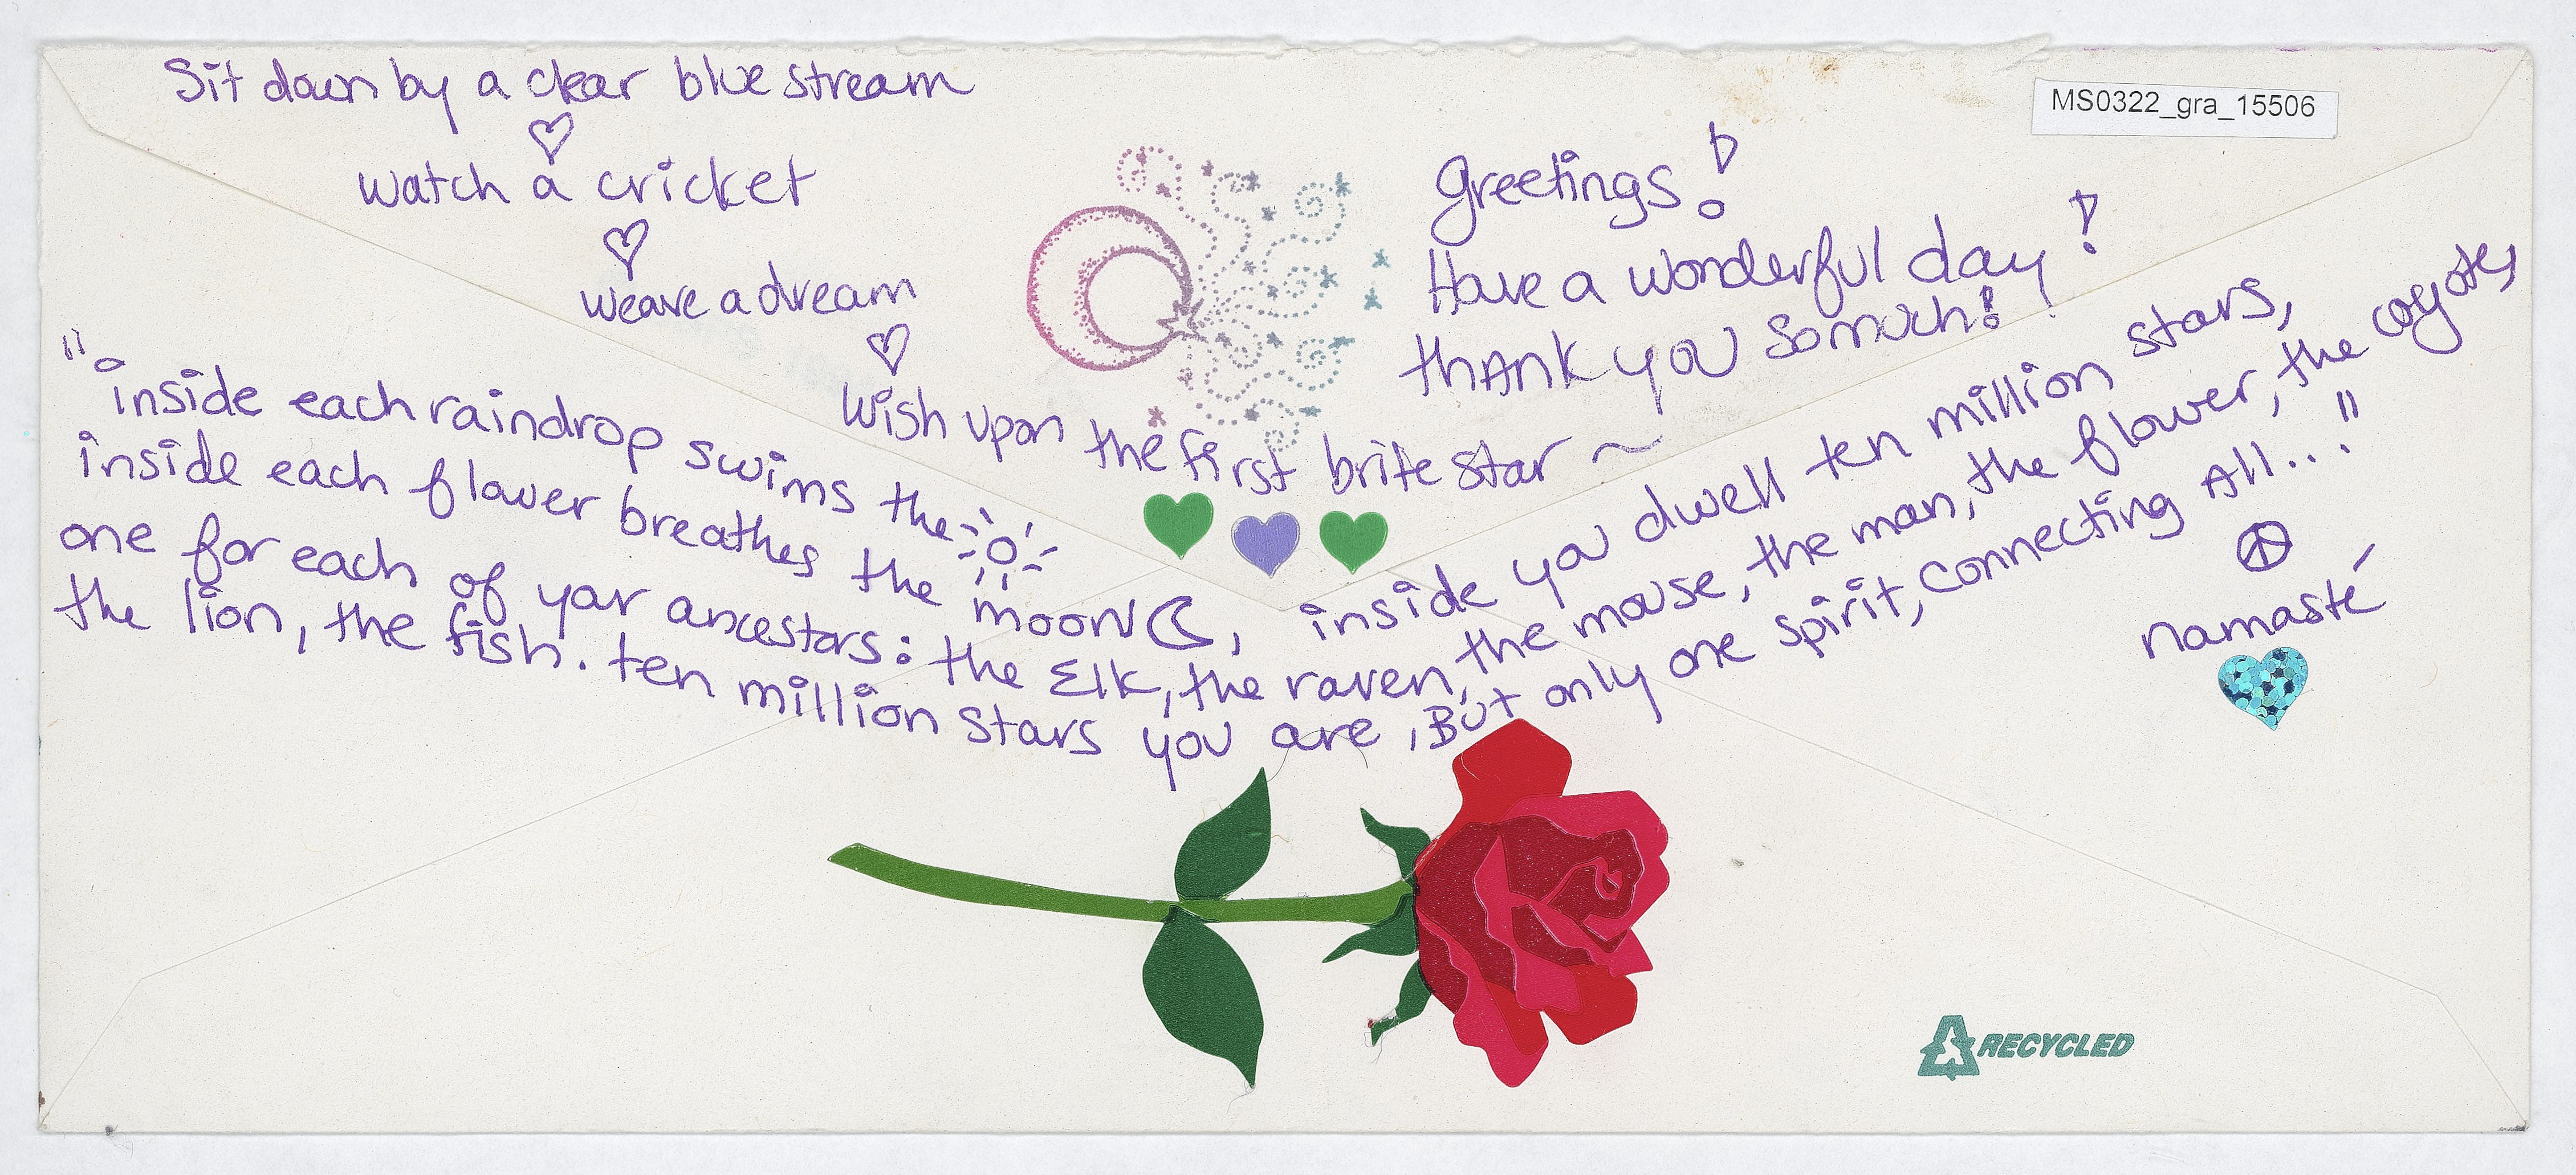 Sit down by a clear blue stream
watch a cricket
weave a dream
wish upon the first brite star ~
MS0322_gra_15506
Greetings!
Have a wonderful day!
thAnk you so much!
"inside each raindrop swims the
inside each flower breathes the moon, inside you dwell ten million stars,
one for each of your ancestors: the Elk, the raven, the mouse, the man, the flower, the coyotes
the lion, the fish. ten million stars you are, But only one spirit, connecting All..."
namasté
RECYCLED